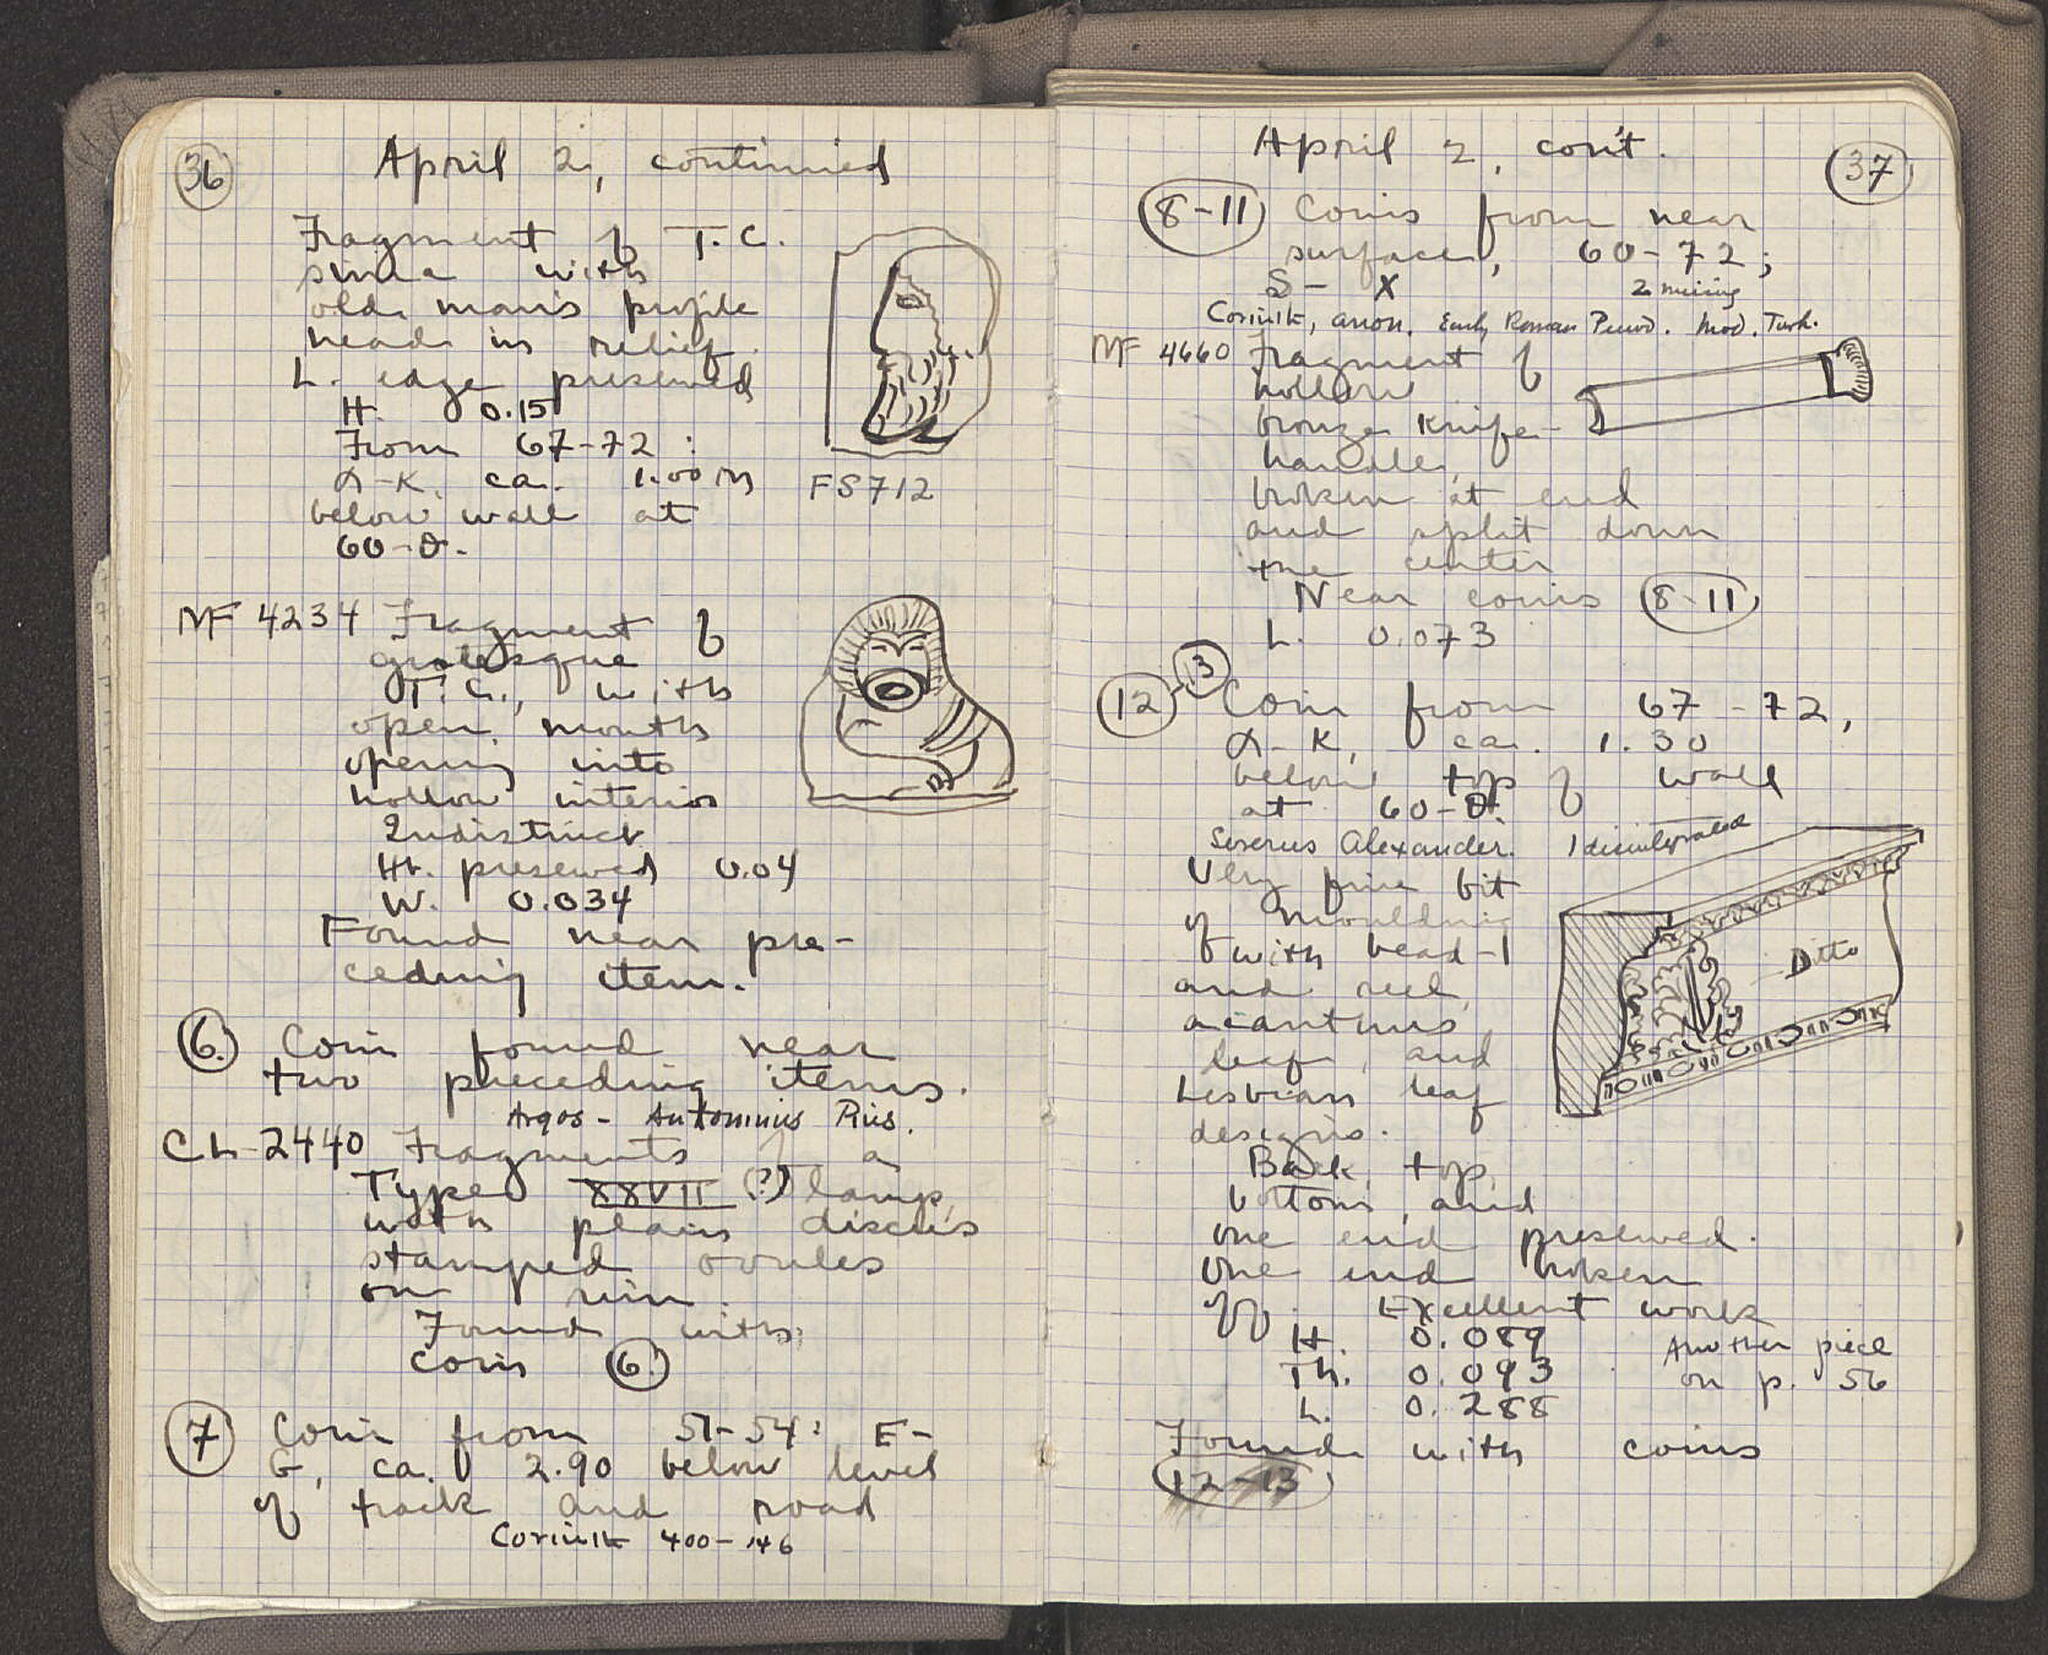 36
April 2, continued
Fragment of T.C.
sima with
old man's profile
head in relief.
L. edge preserved
H. 0.15
From 67-72:
α-K, ca. 1.00 m
below wall at
60-θ.
FS 712
MF 4234 Fragment of
grotesque
T.C., with
open mouth
opening into
hollow interior
Indistinct
Ht. preserved 0.04
W. 0.034
Found near pre-
ceding item.
6. Coin found near
two preceding items.
Argos - Antoninus Pius.
CL-2440 Fragments of a
Type XXVII (?) lamp,
with plain discus
stamped ovules
on rim.
Found with
coin 6.
7 Coin from 51-54: E-
G, ca. 2.90 below level
of track and road
Corinth 400-146
37
April 2, con't.
8-11 Coins from near
surface, 60-72;
S - X
2 missing
Corinth, anon. Early Roman Period. Mod. Turk.
MF 4660 Fragment of
hollow
bronze knife-
handle,
broken at end
and split down
the center
Near coins 8-11
L. 0.073
12-13 Coin from 67-72,
α-K, ca. 1.30
below top of wall
at 60-θ.
Severus Alexander. 1 disintegrated
Very fine bit
of moulding
with bead-
and reel,
acanthus
leaf, and
Lesbian leaf
designs.
Ditto
Back, top,
bottom, and
one end preserved.
One end broken
off. Excellent work
H. 0.089
Th. 0.093
L. 0.288
Another piece
on p. 56
Found with coins
12-13